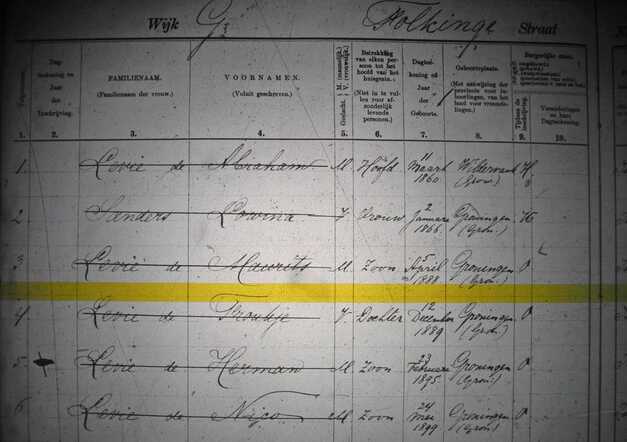 Wijk G3 Folkinge Straat
Dag-
teekening en
Jaar
der
Inschrijving.
FAMILIENAAM.
(Familienaam der vrouw.)
VOORNAMEN.
(Voluit geschreven.)
Geslacht. M. (mannelijk.) V. (vrouwelijk.)
Betrekking
van elken per-
soon tot het
hoofd van het
huisgezin.
(Niet in te vul-
len voor af-
zonderlijk
levende
personen.)
Dagtee-
kening en
Jaar
der
Geboorte.
Geboorteplaats.
Burgerlijke staat.
Tijdens de inschrijving.
Veranderingen en hare
Dagteekening.
1. 2. 3. 4. 5. 6. 7. 8. 9. 10.
1 Levie de Abraham M. Hoofd 11 Maart 1860 Wildervank (Gron.) H
2 Sanders Lowina V. Vrouw 2 Januari 1866 Groningen (Gron.) H
3 Levie de Maurits M. Zoon 5 April 1888 Groningen (Gron.) O
4 Levie de Froukje V. Dochter 12 December 1889 Groningen (Gron.) O
5 Levie de Herman M. Zoon 23 Februari 1895 Groningen (Gron.) O
6 Levie de Nico M Zoon 24 Mei 1899 Groningen (Gron.) O